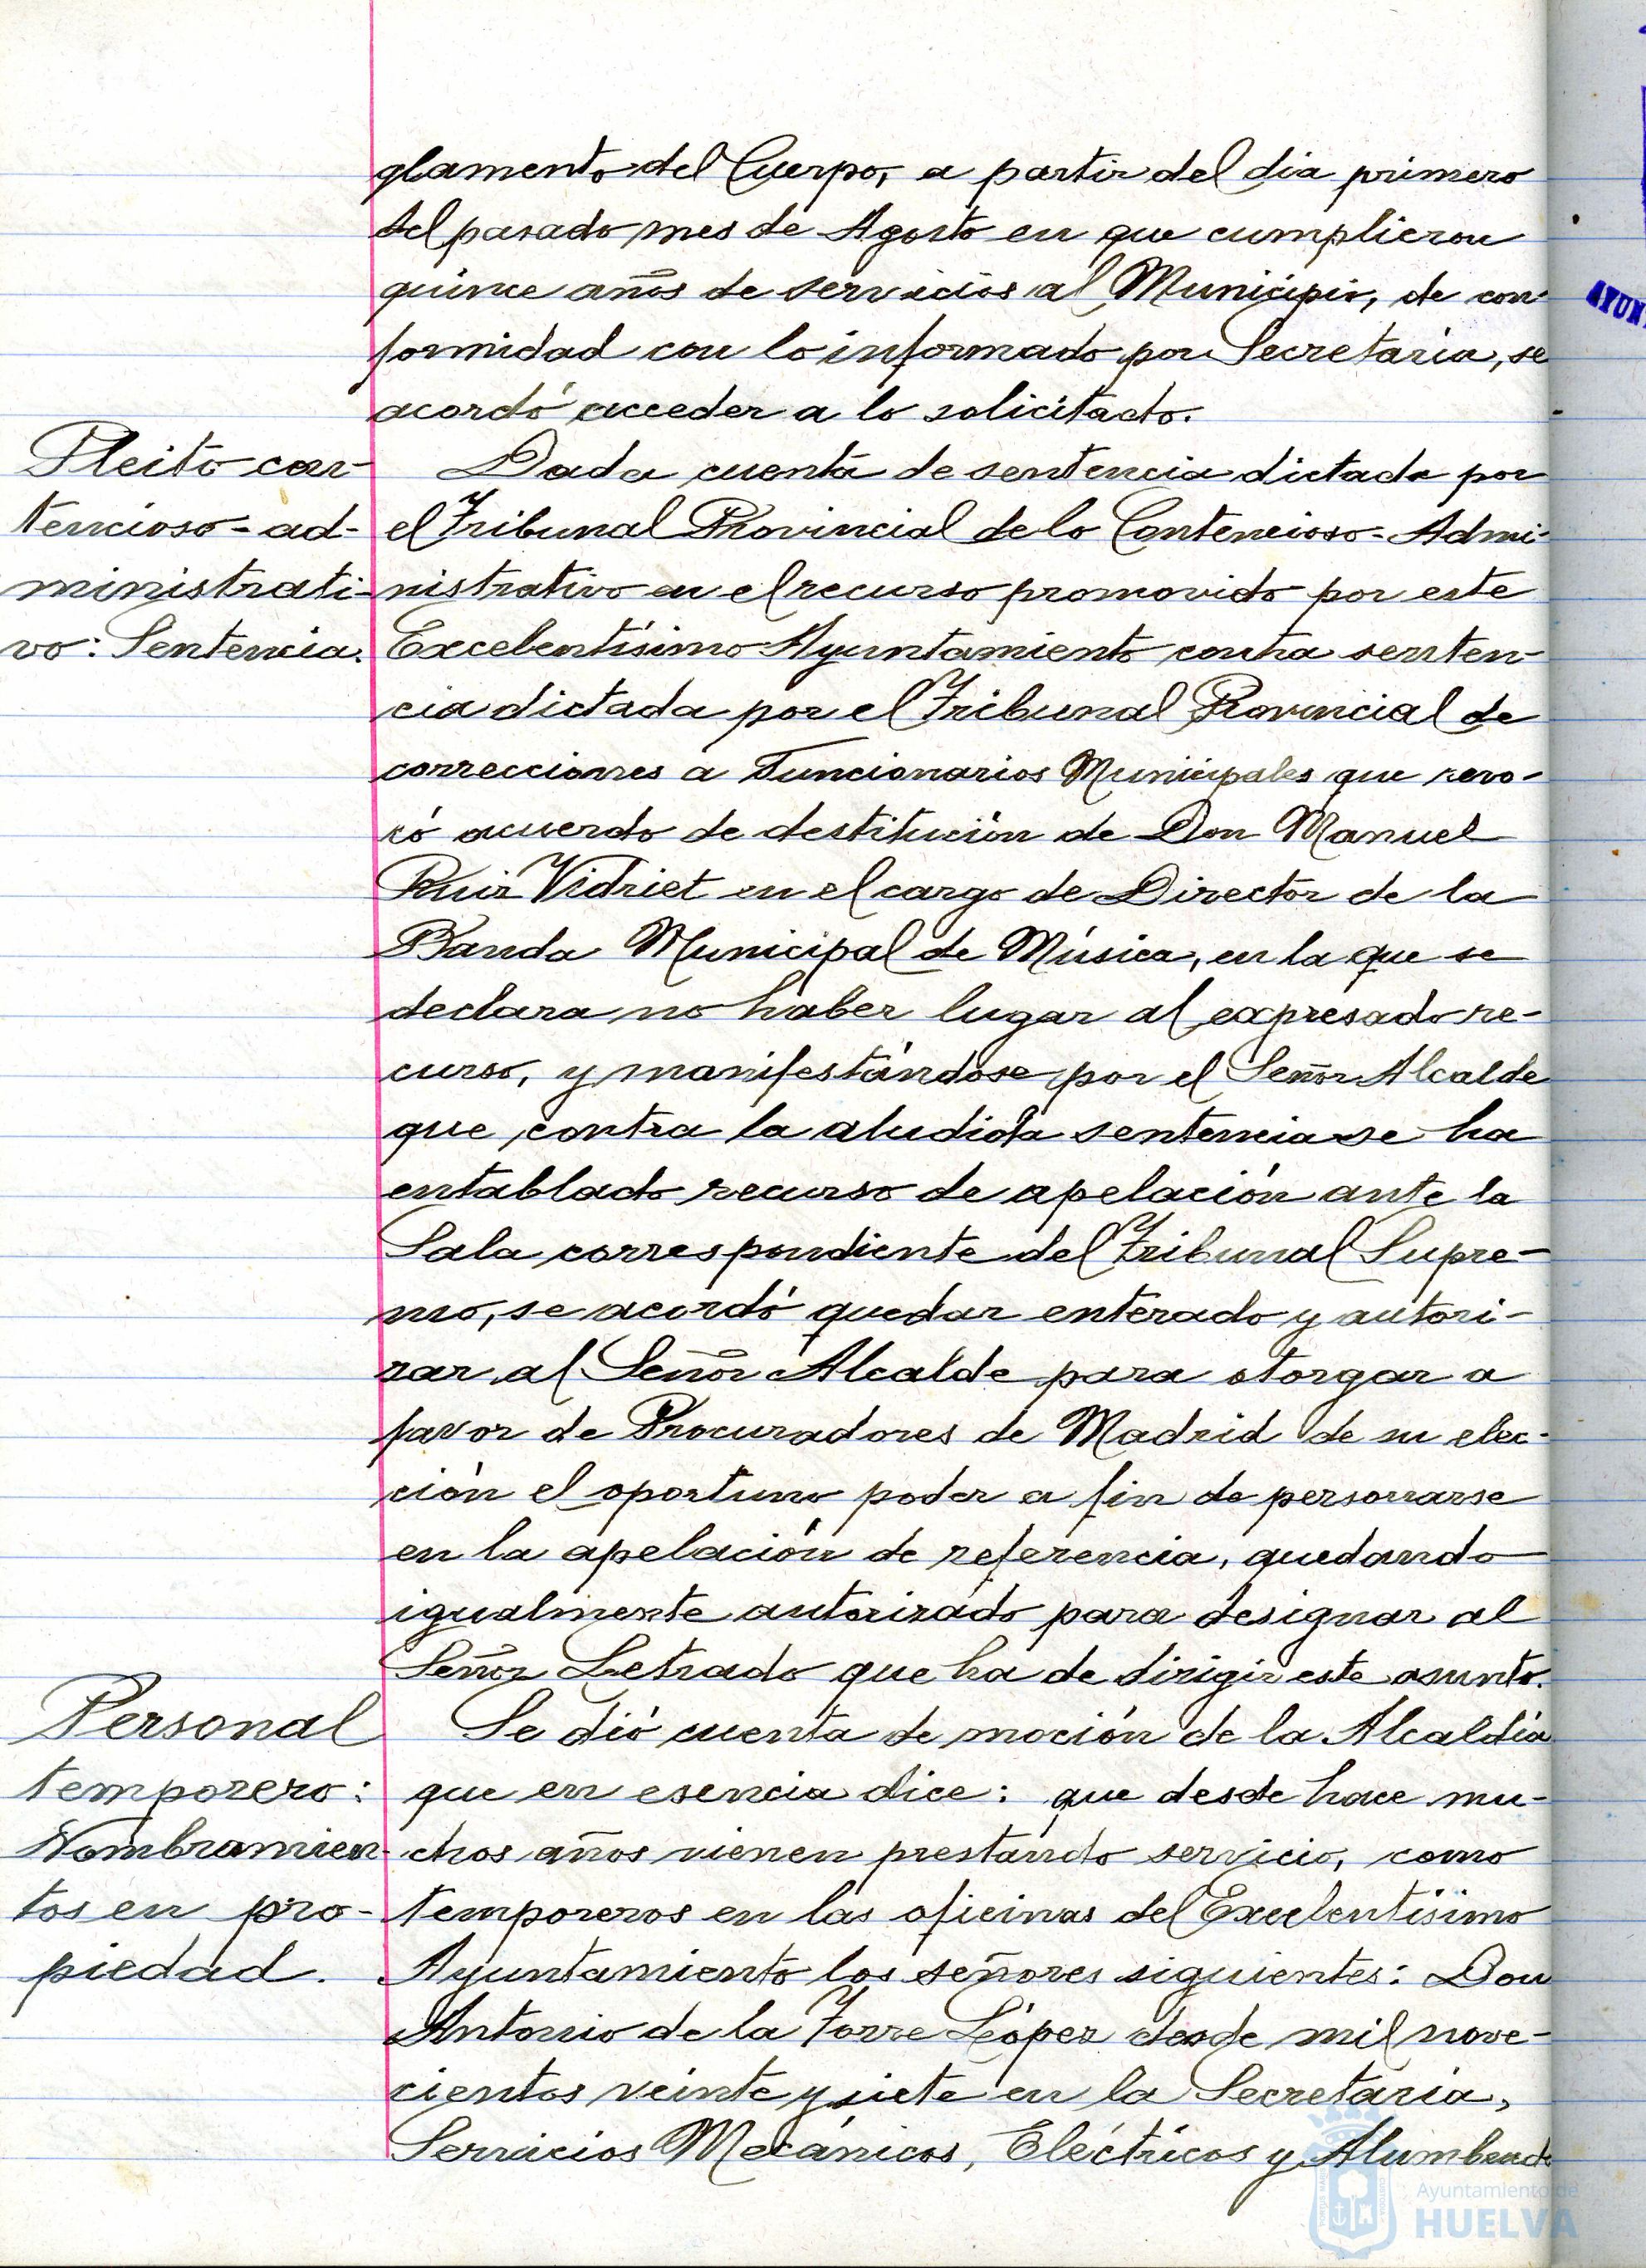 glamento del Cuerpo, a partir del dia primero
del pasado mes de Agosto en que cumplieron
quince años de servicios al Municipio, de con-
formidad con lo informado por Secretaria, se
acordó acceder a lo solicitado.
Pleito con-
tencioso-ad-
ministrati-
vo: Sentencia.
Dada cuenta de sentencia dictada por
el Tribunal Provincial de lo Contencioso-Admi-
nistrativo en el recurso promovido por este
Excelentísimo Ayuntamiento contra senten-
cia dictada por el Tribunal Provincial de
correcciones a Funcionarios Municipales que revo-
có acuerdo de destitución de Don Manuel
Ruiz Vidriet en el cargo de Director de la
Banda Municipal de Música, en la que se
declara no haber lugar al expresado re-
curso, y manifestándose por el Señor Alcalde
que contra la aludida sentencia se ha
entablado recurso de apelación ante la
Sala correspondiente del Tribunal Supre-
mo, se acordó quedar enterado y autori-
zar al Señor Alcalde para otorgar a
favor de Procuradores de Madrid de su elec-
ción el oportuno poder a fin de personarse
en la apelación de referencia, quedando
igualmente autorizado para designar al
Señor Letrado que ha de dirigir este asunto.
Personal
temporero:
Nombramien-
tos en pro-
piedad.
Se dió cuenta de moción de la Alcaldía
que en esencia dice: que desde hace mu-
chos años vienen prestando servicio, como
temporeros en las oficinas del Excelentísimo
Ayuntamiento los señores siguientes: Don
Antonio de la Torre López desde mil nove-
cientos veinte y siete en la Secretaria,
Servicios Mecánicos, Eléctricos y Alumbrado
AYUN
Ayuntamiento de
HUELVA